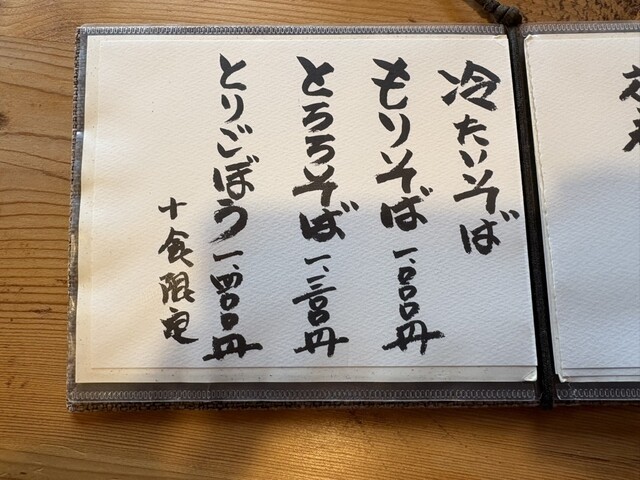 冷たいそば
もりそば 一、〇〇〇円
とろろそば 一、三〇〇円
とりごぼう 一、四〇〇円
十食限定